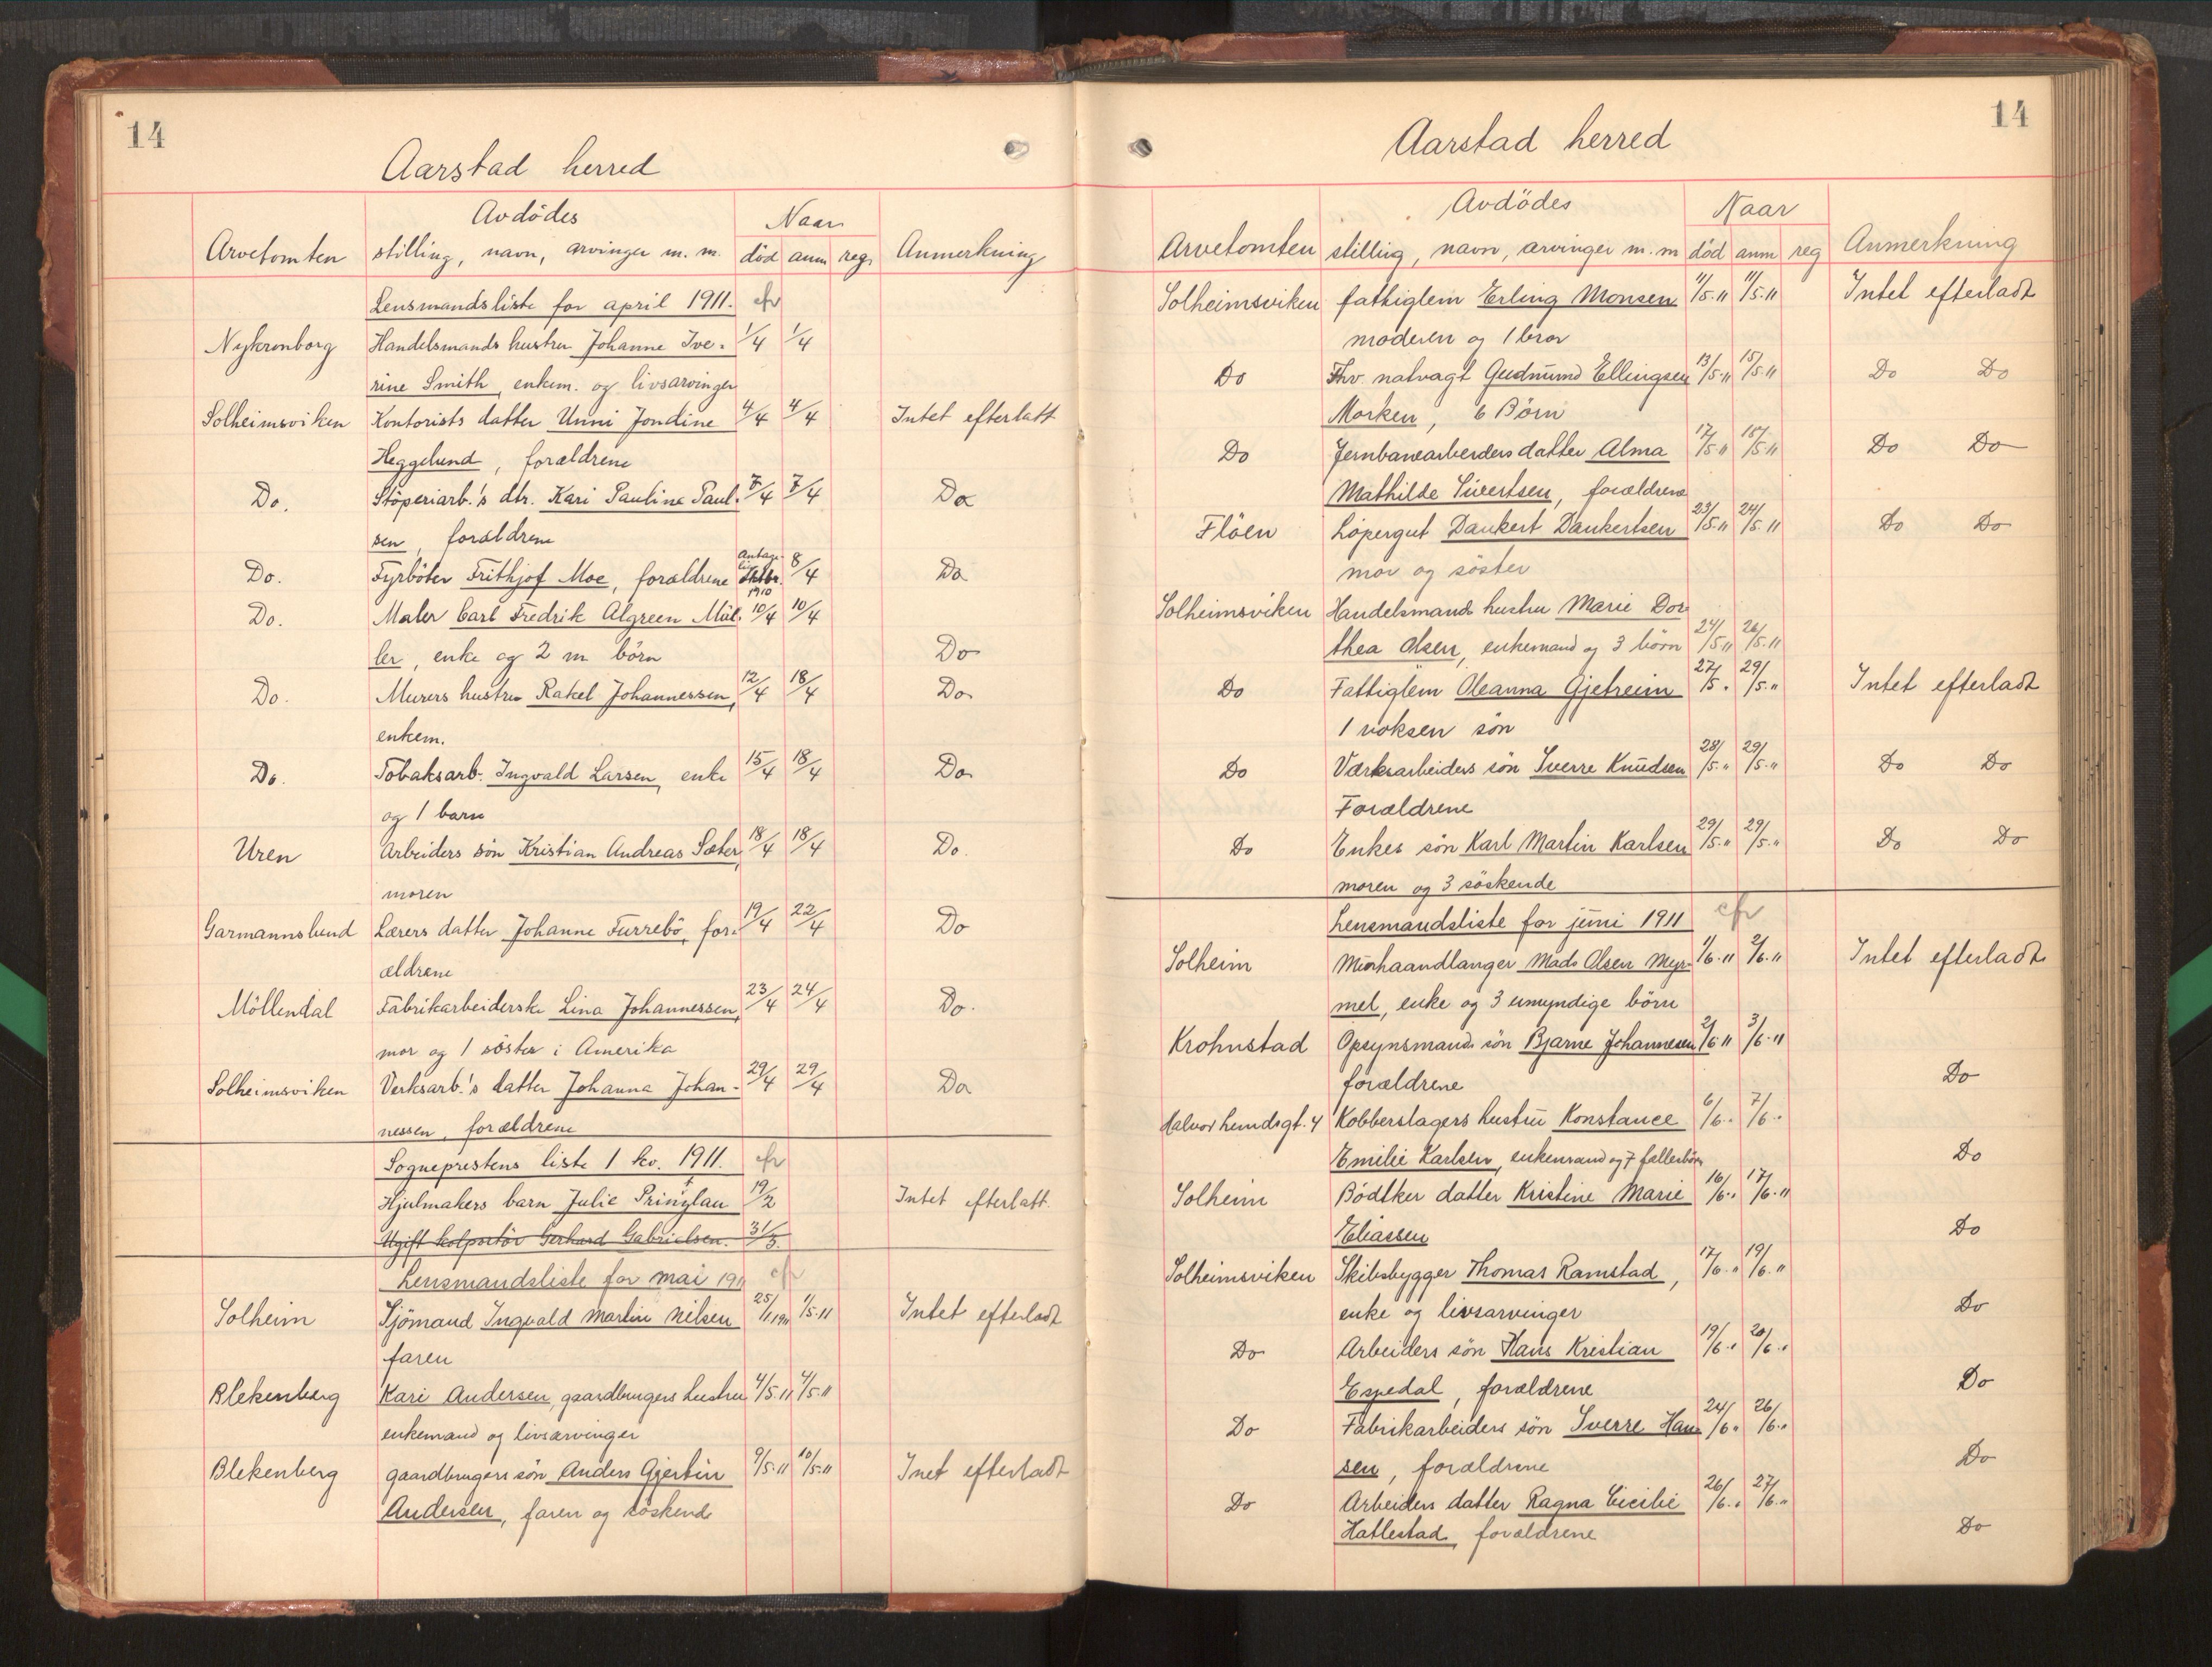 14
Aarstad herred
Avdödes
Naar
Arvetomten stilling, navn, arvinger m. m. död anm reg. Anmerkning
Lensmandsliste for april 1911. cfr
Nykronborg Handelsmands hustru Johanne Ive- 1/4 1/4
rine Smith, enkem. og livsarvinger
Solheimsviken Kontorists datter Unni Jondine 4/4 4/4 Intet efterlatt
Heggelund, forældrene
Do. Stöperiarb.'s dtr. Kari Pauline Paul- 7/4 7/4 Do
sen, forældrene
Do. Fyrböter Frithjof Moe, forældrene Antage-lig Oktbr. 1910 8/4 Do
Do. Maler Carl Fredrik Algreen Möl- 10/4 10/4
ler, enke og 2 m börn Do
Do. Murers hustru Rakel Johannessen, 12/4 18/4 Do
enkem.
Do. Tobaksarb. Ingvald Larsen, enke 15/4 18/4 Do
og 1 barn
Uren Arbeiders sön Kristian Andreas Sæter, 18/4 18/4 Do.
moren
Garmannslund Lærers datter Johanne Furrebö, for- 19/4 22/4 Do
ældrene
Möllendal Fabrikarbeiderske Lina Johannessen, 23/4 24/4 Do.
mor og 1 söster i Amerika
Solheimsviken Verksarb.'s datter Johanna Johan- 29/4 29/4 Do
nessen, forældrene
Sogneprestens liste 1 kv. 1911. cfr
Hjulmakers barn Julie Pringlau 19/2 Intet efterlatt.
Ugift kolportör Gerhard Gabrielsen. 31/3.
Lensmandsliste for mai 1911 cfr
Solheim Sjömand Ingvald Martin Nilsen 25/1 1911 1/5.11 Intet efterladt
faren
Blekenberg Kari Andersen, gaardbrugers hustru 4/5.11 4/5.11
enkemand og livsarvinger
Blekenberg gaardbrugers sön Anders Gjertin 9/5.11 10/5.11 Inet efterladt
Andersen, faren og söskende
14
Aarstad herred
Avdödes
Naar
Arvetomten stilling, navn, arvinger m. m död anm reg Anmerkning
Solheimsviken fattiglem Erling Monsen 11/5.11 11/5.11 Intet efterladt
moderen og 1 bror
Do Fhv. natvagt Gudmund Ellingsen 13/5.11 15/5.11 Do Do
Morken, 6 Börn
Do Jernbanearbeiders datter Alma 17/5.11 18/5.11 Do Do
Mathilde Sivertsen, forældrene
Flöen Löpergut Dankert Dankertsen 23/5.11 24/5.11 Do Do
mor og söster
Solheimsviken Handelsmands hustru Marie Dor-
thea Olsen, enkemand og 3 börn 24/5 11 26/5.11
Do Fattiglem Oleanna Gjetreim 27/5 " 29/5." Intet efterladt
1 voksen sön
Do Værksarbeiders sön Sverre Knudsen 28/5." 29/5." Do Do
Forældrene
Do Enkes sön Karl Martin Karlsen 29/5." 29/5." Do Do
moren og 3 söskende
Lensmandsliste for juni 1911 cfr
Solheim Murhaandlanger Mads Olsen Myr- 1/6.11 2/6.11 Intet efterladt
mel, enke og 3 umyndige börn
Krohnstad Opsynsmands sön Bjarne Johannesen 2/6 11 3/6.11
forældrene Do
Halvor heindsgt. 4 Kobberslagers hustru Konstance 6/6." 7/6."
Emilie Karlsen, enkemand og 7 fællesbörn Do
Solheim Bödtker datter Kristine Marie 16/6." 17/6.11
Eliassen Do
Solheimsviken Skibsbygger Thomas Ramstad, 17/6." 19/6."
enke og livsarvinger Do
Do Arbeiders sön Hans Kristian 19/6." 20/6."
Espedal, forældrene Do
Do Fabrikarbeiders sön Sverre Han- 24/6." 26/6."
sen, forældrene Do
Do Arbeiders datter Ragna Cicilie 26/6." 27/6."
Hatlestad, forældrene Do